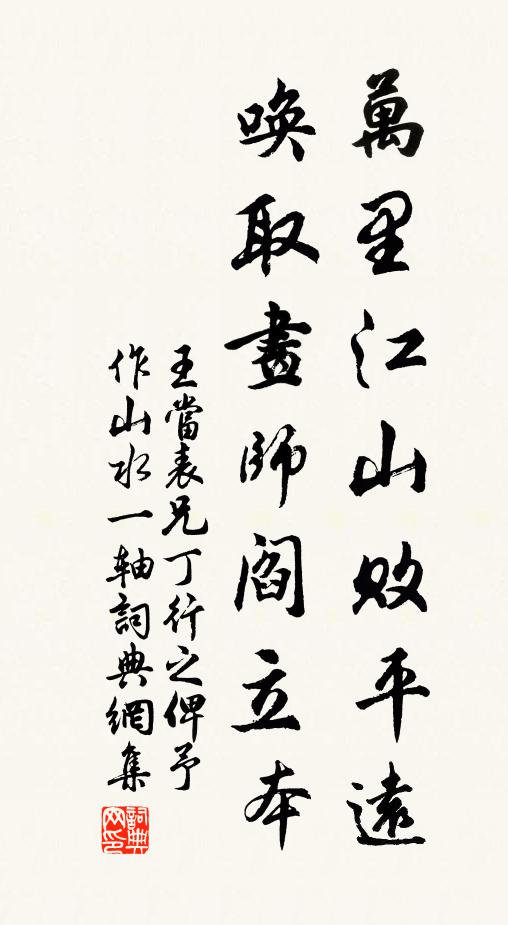 萬里江山敗平遠
喚取畫師閻立本
王當表兄丁行之俾予
作山水一軸詞典網集
詞典
網印